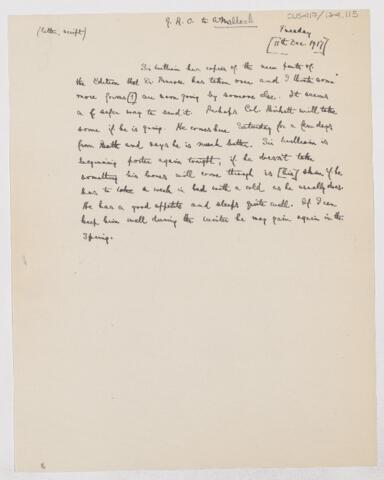 G.R.O. to A Mallock
(letter, script)
Tuesday
[11th Dec. 1917]
Sir William has copies of the new parts of
the Edition that Dr has taken once and I think some
more forms [?] are soon going by someone else. It seems
a safer way to send it. Perhaps Col. will take
some if he is going. He comes here Saturday for a few days
from Bath and says he is much better. Sir William is
beginning porter again tonight, if he doesn't take
something his bones will come through is [his] skin if he
has to take a week in bed with a cold as he usually does.
He has a good appetite and sleeps quite well. If I can
keep him well during the winter he may gain again in the
Spring.